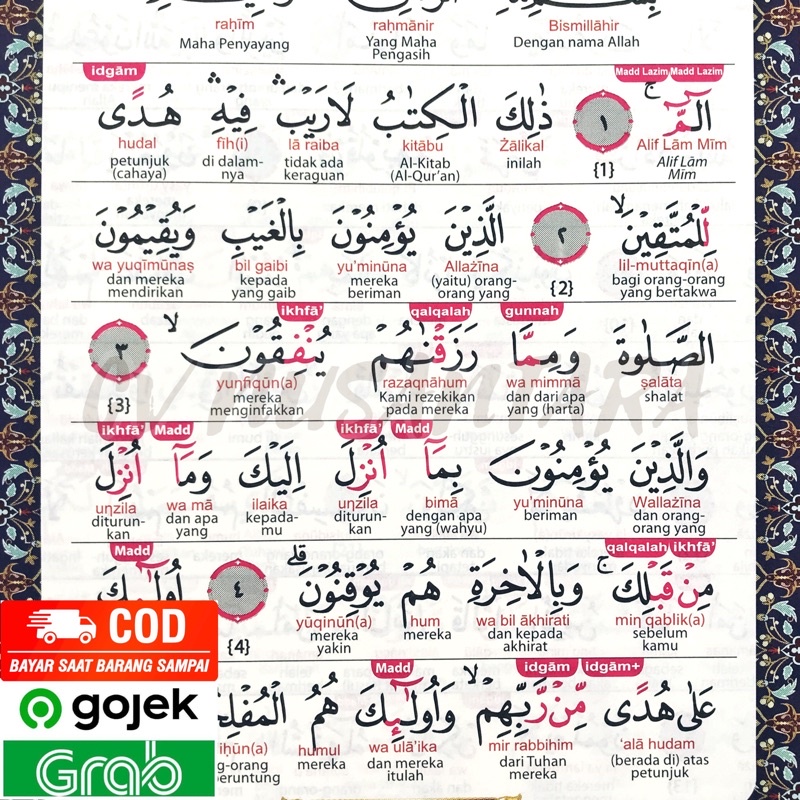 raḥīm raḥmānir Bismillāhir
Maha Penyayang Yang Maha Pengasih Dengan nama Allah
idgām Madd Lazim Madd Lazim
الٓمّٓ ۚ ١ ذٰلِكَ الْكِتٰبُ لَا رَيْبَ ۛ فِيْهِ ۛ هُدًى
hudal fīh(i) lā raiba kitābu Żālikal {1} Alif Lām Mīm
petunjuk (cahaya) di dalam-nya tidak ada keraguan Al-Kitab (Al-Qur'an) inilah Alif Lām Mīm
لِّلْمُتَّقِيْنَ ۙ ٢ الَّذِيْنَ يُؤْمِنُوْنَ بِالْغَيْبِ وَيُقِيْمُوْنَ
wa yuqīmūnaṣ bil gaibi yu'minūna Allażīna {2} lil-muttaqīn(a)
dan mereka mendirikan kepada yang gaib mereka beriman (yaitu) orang-orang yang bagi orang-orang yang bertakwa
ikhfā' qalqalah gunnah
الصَّلٰوةَ وَمِمَّا رَزَقْنٰهُمْ يُنْفِقُوْنَ ۙ ٣
{3} yuṇfiqūn(a) razaqnāhum wa mimmā ṣalāta
mereka menginfakkan Kami rezekikan pada mereka dan dari apa yang (harta) shalat
ikhfā' Madd ikhfā' Madd
وَالَّذِيْنَ يُؤْمِنُوْنَ بِمَآ اُنْزِلَ اِلَيْكَ وَمَآ اُنْزِلَ
uṇzila wa mā ilaika uṇzila bimā yu'minūna Wallażīna
diturun-kan dan apa yang kepada-mu diturun-kan dengan apa yang (wahyu) beriman dan orang-orang yang
Madd qalqalah ikhfā'
مِنْ قَبْلِكَ ۚ وَبِالْاٰخِرَةِ هُمْ يُوْقِنُوْنَ ۗ ٤ اُولٰۤىِٕكَ
{4} yūqinūn(a) hum wa bil ākhirati miṇ qablik(a)
mereka yakin mereka dan kepada akhirat sebelum kamu
Madd idgām idgām+
عَلٰى هُدًى مِّنْ رَّبِّهِمْ ۙ وَاُولٰۤىِٕكَ هُمُ الْمُفْلِ
iḥūn(a) humul wa ulā'ika mir rabbihim 'alā hudam
g-orang eruntung mereka dan mereka itulah dari Tuhan mereka (berada di) atas petunjuk
COD
BAYAR SAAT BARANG SAMPAI
gojek
Grab